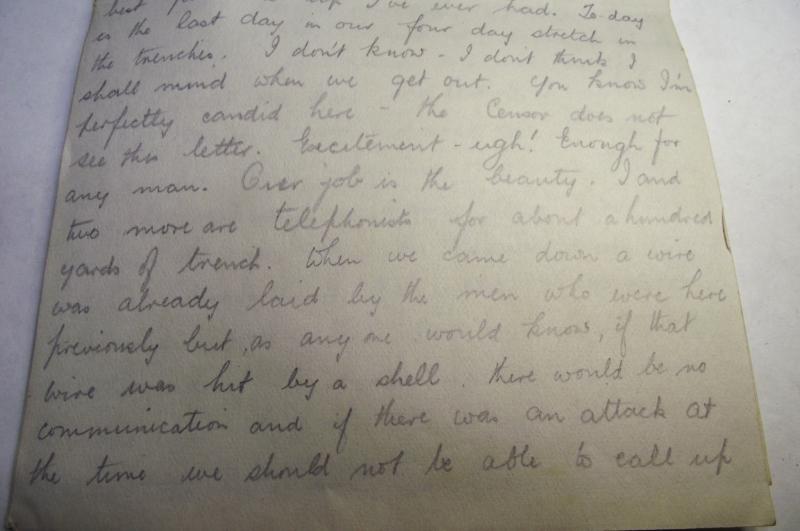 I've ever had. To-day
is the last day in our four day stretch in
the trenches. I don't know - I don't think I
shall mind when we get out. You know I'm
perfectly candid here - the Censor does not
see this letter. Excitement - ugh! Enough for
any man. Our job is the beauty. I and
two more are telephonists for about a hundred
yards of trench. When we came down a wire
was already laid by the men who were here
previously but, as any one would know, if that
wire was hit by a shell, there would be no
communication and if there was an attack at
the time we should not be able to call up